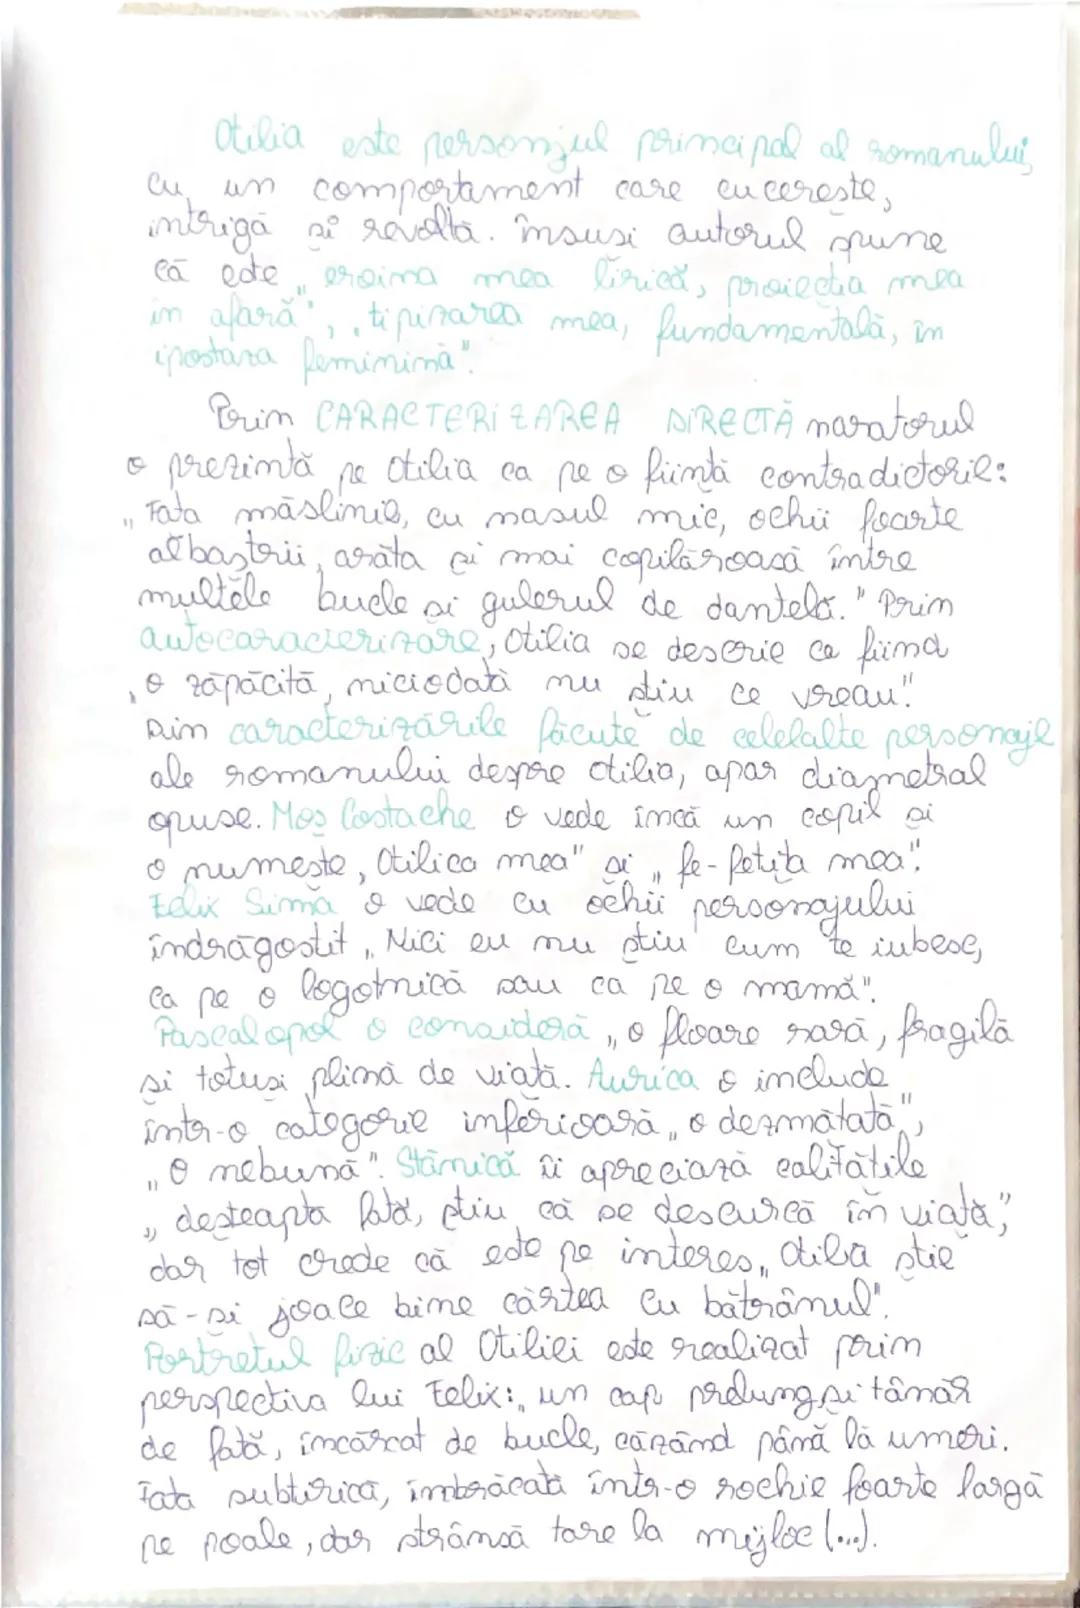 Otilia este personjul principal al romanului,
cu un comportament care cucereste,
intrigă si revoltă. însusi autorul spune
că este „eroina mea lirică, proiectia mea
in afară", „tipizarea mea, fundamentală, in
ipostaza feminină".
Prin CARACTERIZAREA DIRECTĂ naratorul
o prezintă pe Otilia ca pe o fiintă contradictorie:
„Fata măslinie, cu nasul mic, ochii foarte
albaștrii, arăta și mai copilăroasă între
multele bucle si gulerul de dantelă." Prin
autocaracterizare, Otilia se descrie ca fiind
„o zăpăcită, niciodată nu știu ce vreau".
Din caracterizările făcute de celelalte personaje
ale romanului despre Otilia, apar diametral
opuse. Moș Costache o vede încă un copil si
o numeste „Otilica mea" si „fe-fetița mea".
Felix Sima o vede cu ochii personajului
îndrăgostit „Nici eu nu știu cum te iubesc,
ca pe o logotnică sau ca pe o mamă".
Pascalopol o consideră „o floare rară, fragilă
si totusi plină de viată. Aurica o include
într-o categorie inferioară „o dezmătată",
„o nebună". Stănică îi apreciază calitătile
„desteapta fată, știu că se descurcă în viată",
dar tot crede că este pe interes „Otilia stie
să-si joace bine cartea cu bătrânul".
Portretul fizic al Otiliei este realizat prin
perspectiva lui Felix: „un cap prelung si tânăr
de fată, încărcat de bucle, căzând până la umeri.
Fata subtirică, îmbrăcată într-o rochie foarte largă
pe poale, dar strânsă tare la mijloc (...).